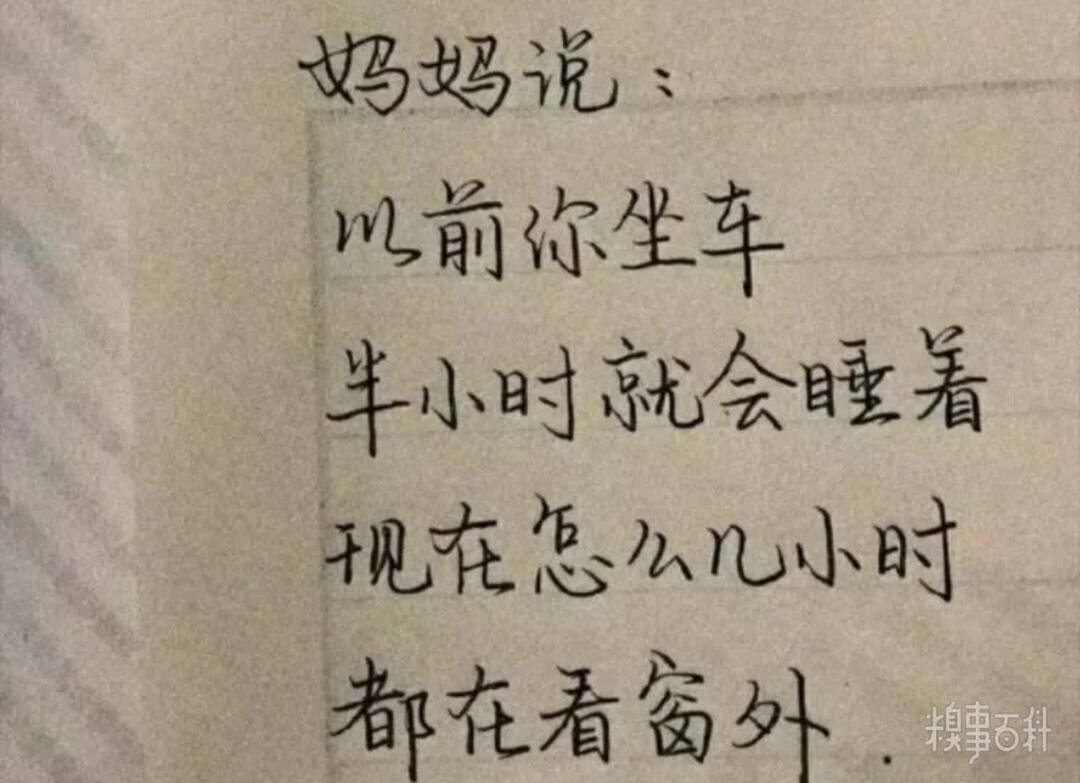 妈妈说：
以前你坐车
半小时就会睡着
现在怎么几小时
都在看窗外.
糗事百科